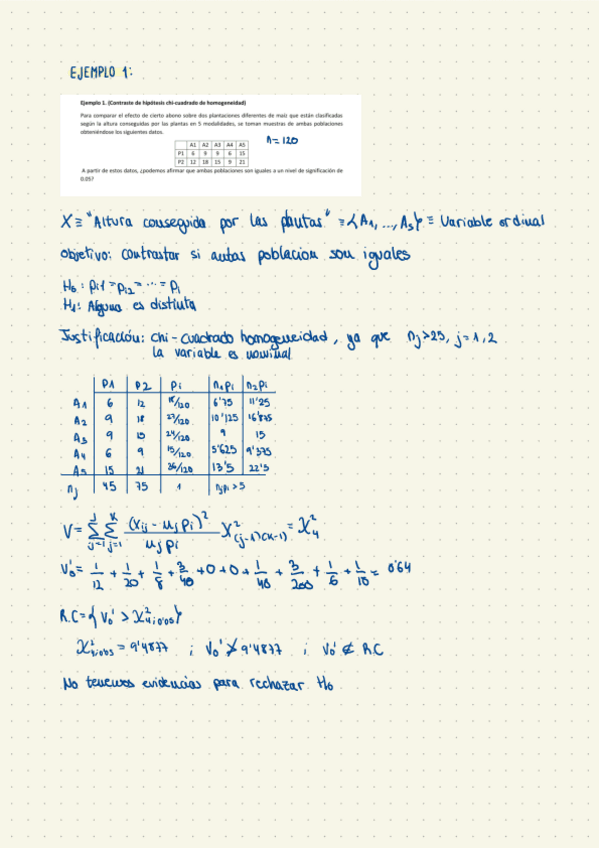 EJEMPLO 1:
Ejemplo 1. (Contraste de hipótesis chi-cuadrado de homogeneidad)
Para comparar el efecto de cierto abono sobre dos plantaciones diferentes de maíz que están clasificadas
según la altura conseguidas por las plantas en 5 modalidades, se toman muestras de ambas poblaciones
obteniéndose los siguientes datos.
A1 A2 A3 A4 A5
P1 6 9 9 6 15
P2 12 18 15 9 21
n=120
A partir de estos datos, ¿podemos afirmar que ambas poblaciones son iguales a un nivel de significación de
0.05?
X≡"Altura conseguida por las plantas" ≡{A1, ..., A5} ≡ Variable ordinal
objetivo: contrastar si ambas poblacion son iguales
H0: Pi1 = Pi2 = ... = Pi
H1: Alguna es distinta
Justificación: chi-cuadrado homogeneidad, ya que nj>25, j=1,2
la variable es nominal
P1 P2 Pi n1pi n2pi
A1 6 12 18/120 6'75 11'25
A2 9 18 27/120 10'125 16'875
A3 9 15 24/120 9 15
A4 6 9 15/120 5'625 9'375
A5 15 21 36/120 13'5 22'5
nj 45 75 1 njpi > 5
V = Σ(j=1)^J Σ(j=1)^K (xij - njpi)² / njpi X²(j-1)(k-1) = X²4
V0' = 1/12 + 1/20 + 1/8 + 3/40 + 0 + 0 + 1/40 + 3/200 + 1/6 + 1/10 = 0'64
R.C = { V0' > X²4;0'05 }
X²4;0'05 = 9'4877 ; V0' ≯ 9'4877 ; V0' ∉ R.C
No tenemos evidencias para rechazar H0